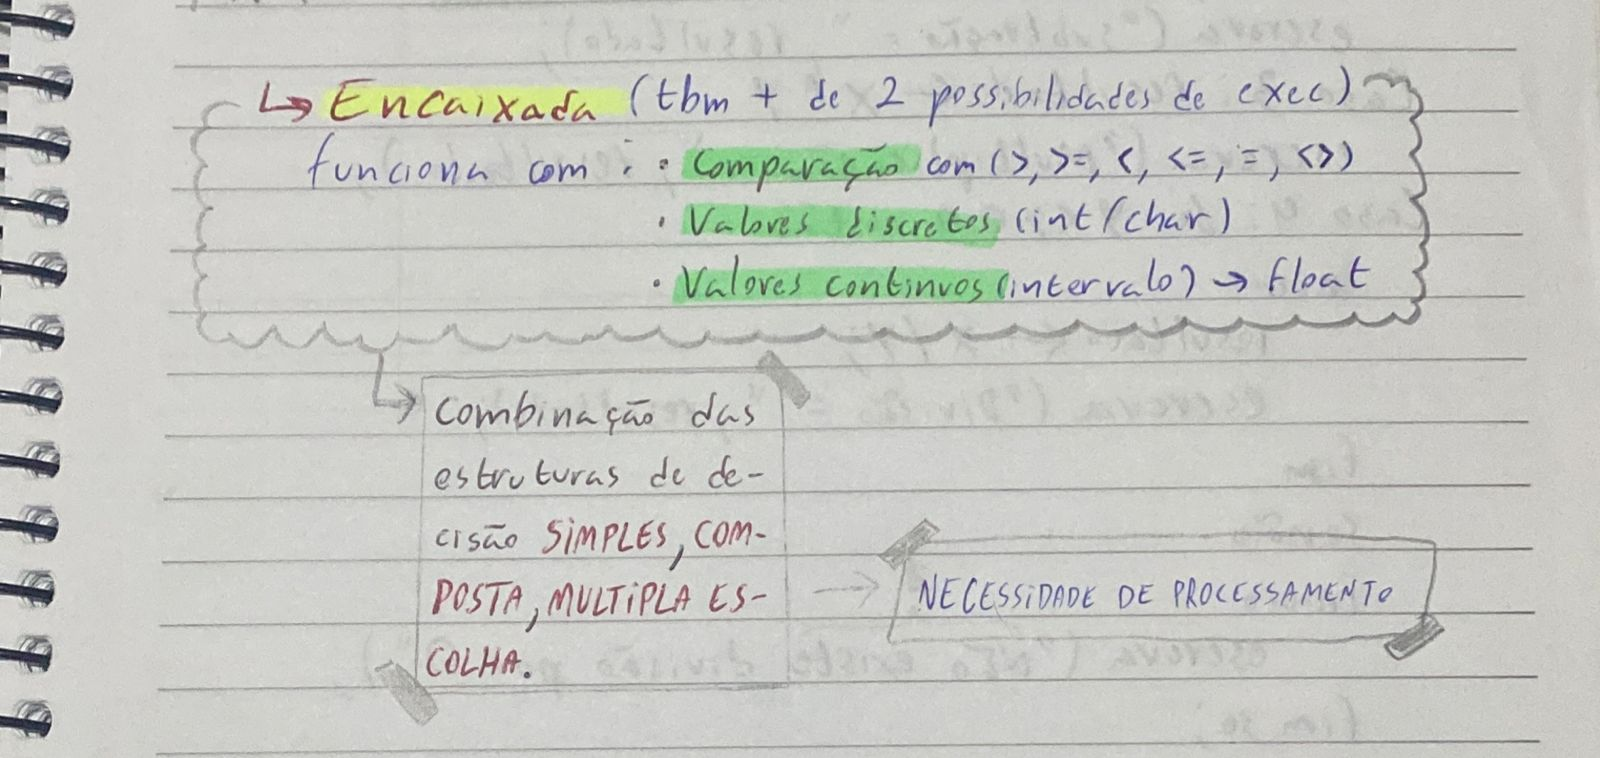 ↳ Encaixada (tbm + de 2 possibilidades de exec)
funciona com: • Comparação com (>, >=, <, <=, =, <>)
• Valores discretos (int/char)
• Valores continuos (intervalo) → float
combinação das
estruturas de de-
cisão SIMPLES, COM-
POSTA, MULTIPLA ES-
COLHA.
→ NECESSIDADE DE PROCESSAMENTO